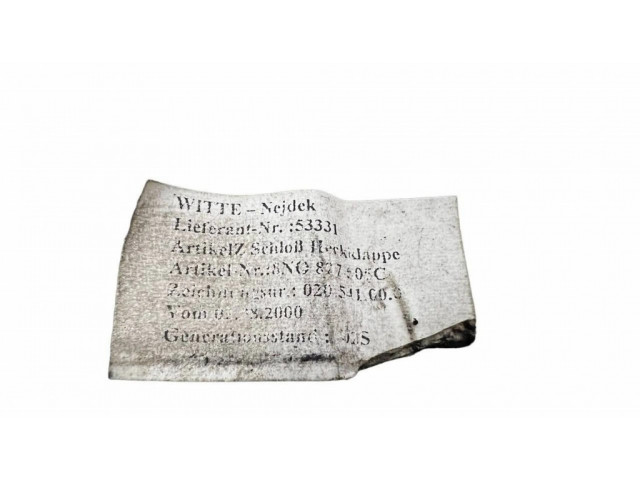 WITTE – Nejdek
Lieferant-Nr. :53331
ArtikelZ Schloß Heckklappe
Artikel-Nr.:8NG 827 505C
Zeichnungsnr.: 020.541.00.
Vom 2000
Generationsstand :